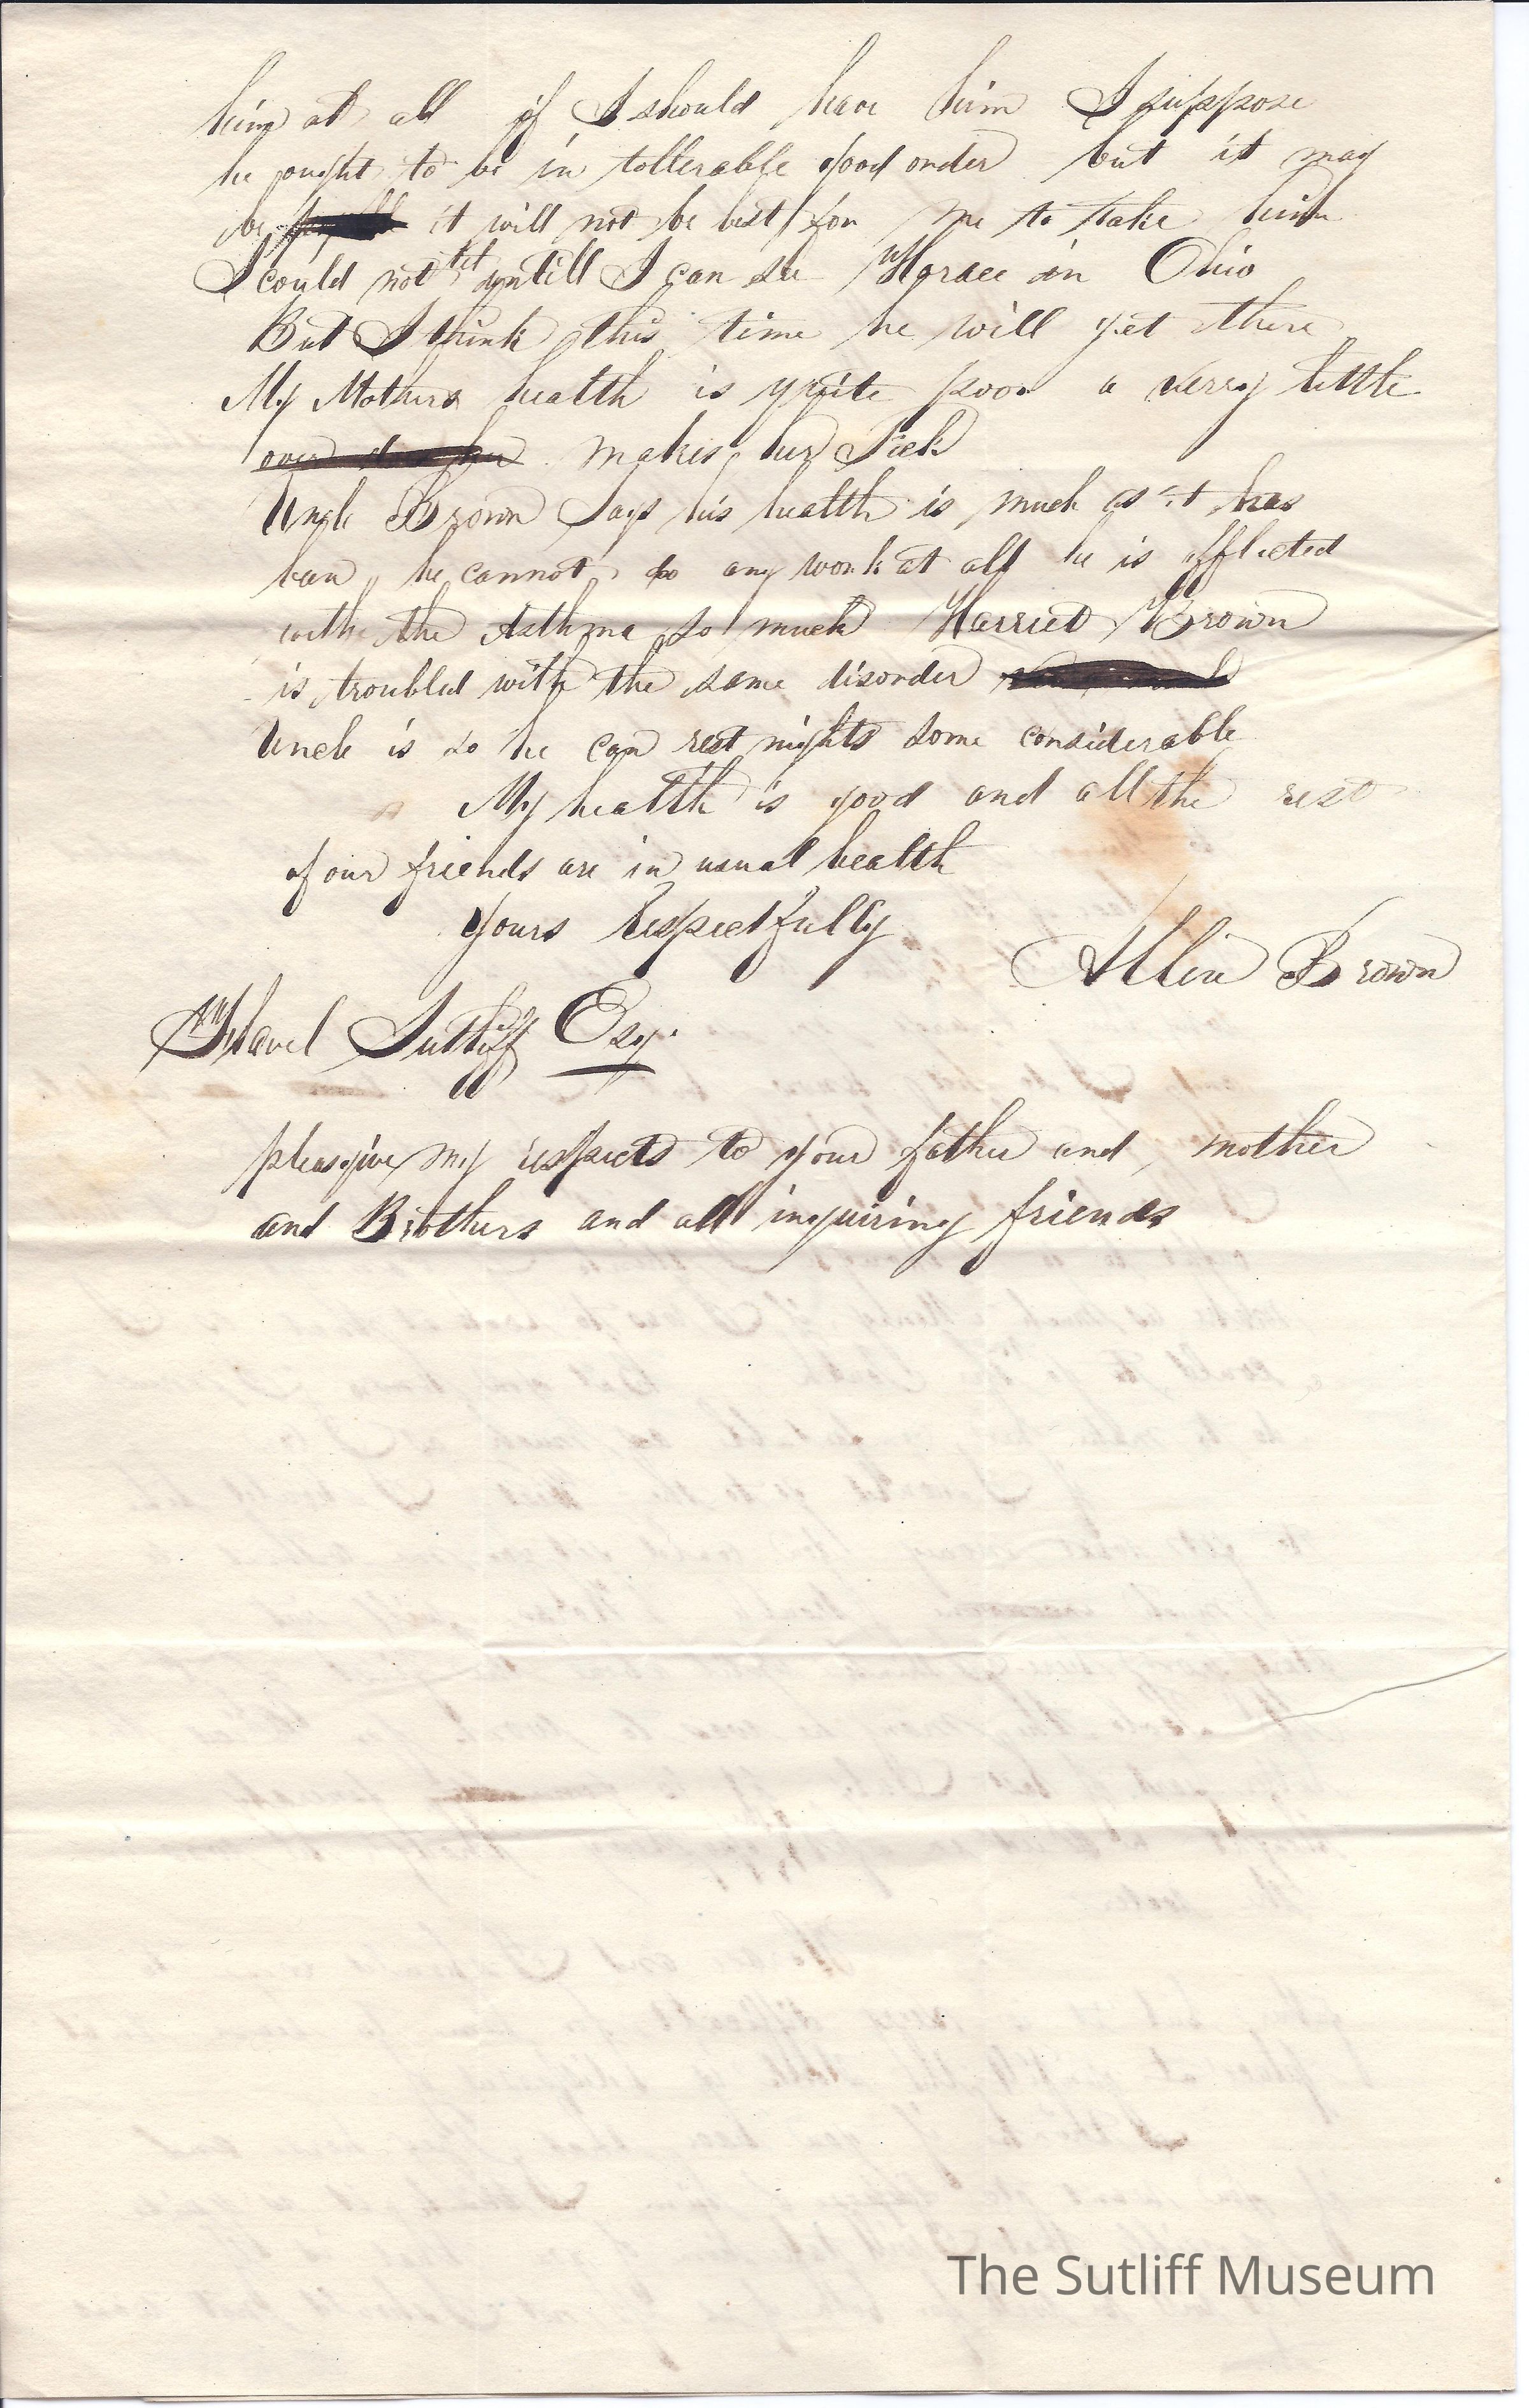 him at all if I should have him I suppose
he ought to be in tollerable good order but it may
be it will not be best for me to take him
I could not tel untill I can see Horace in Ohio
But I think this time he will get there
My Mothers health is quite poor a verry little
over does her makes her Sick
Uncle Brown Says his health is much as it has
ben he cannot do any work at all he is afflicted
with the Asthma so much Harriet Brown
is troubled with the same disorder
Uncle is so he can rest nights some considerable
My health is good and all the rest
of our friends are in usual health
Yours Respectfully
Allen Brown
Flavel Sutliff Esq.
pleas give my respects to your father and mother
and Brothers and all inquiring friends
The Sutliff Museum